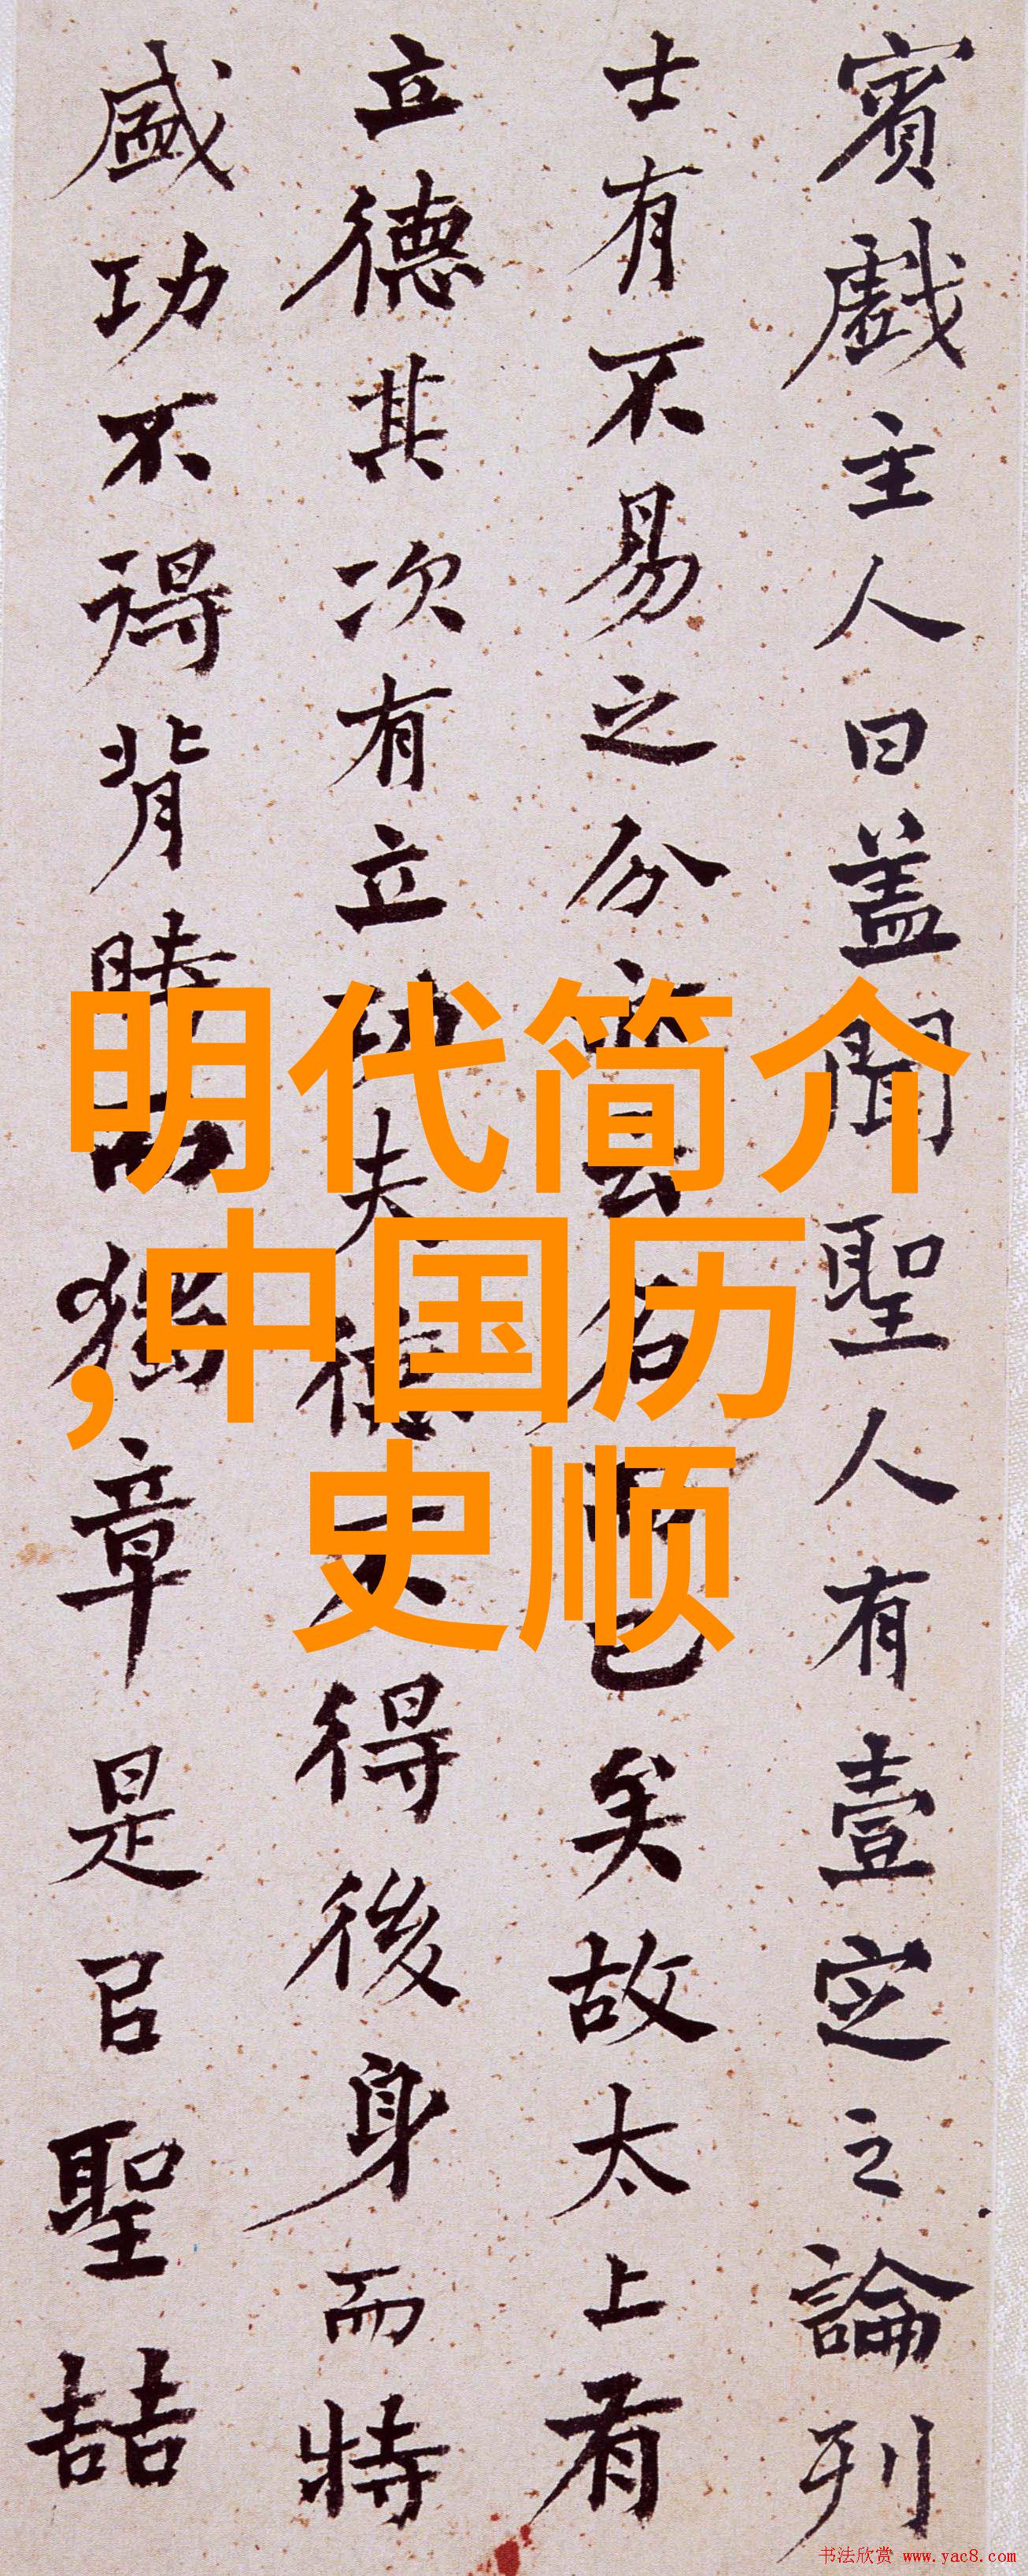 賓戲主人曰盖聞聖人有壹定之論列
士有不易之分亦云名而已矣故太上有
立德其次有立功夫德不得後身而特
盛功不得背時而獨章是㠯聖喆
明代简介
,中国历
史顺
书法欣赏 www.yac8.com